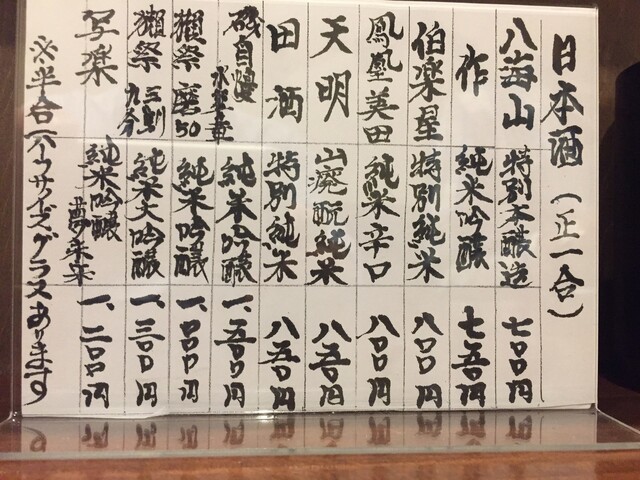 日本酒（正一合）
八海山 特別本醸造 七〇〇円
作 純米吟醸 七五〇円
伯楽星 特別純米 八〇〇円
鳳凰美田 純米辛口 八〇〇円
天明 山廃酛純米 八五〇円
田酒 特別純米 八五〇円
磯自慢 水響華 純米吟醸 一、五〇〇円
獺祭 磨50 純米吟醸 一、〇〇〇円
獺祭 三割九分 純米大吟醸 一、三〇〇円
写楽 純米吟醸 一、二〇〇円
※半合（ハウサイズ）グラスあります